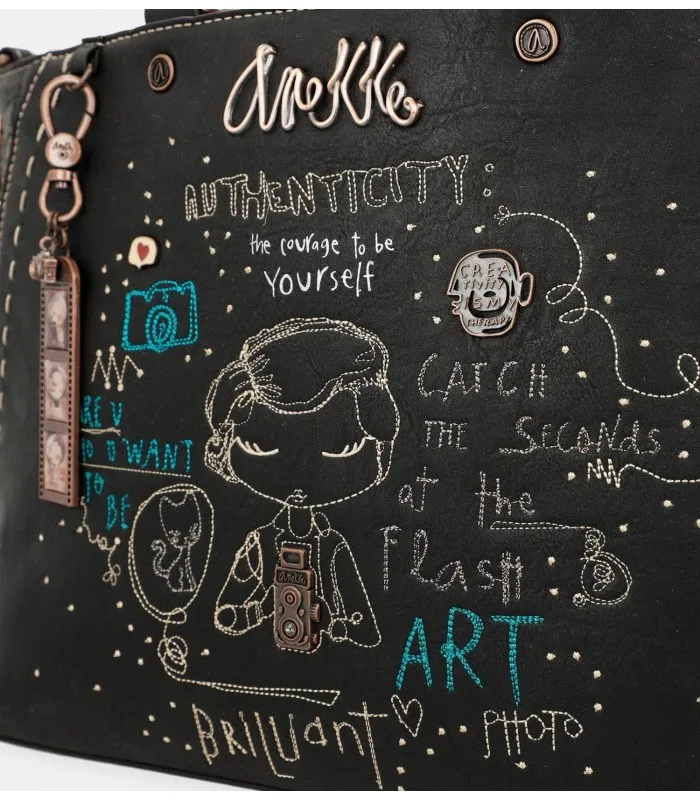 anekke
AUTHENTICITY:
the courage to be
YOURSELF
CREA
TIVITY
ISM
THERAPY
CATCH
THE SECONDS
at the
FLASH
RE U
O U WANT
TO
BE
anekke
ART
BRILLIANT
PHOTO